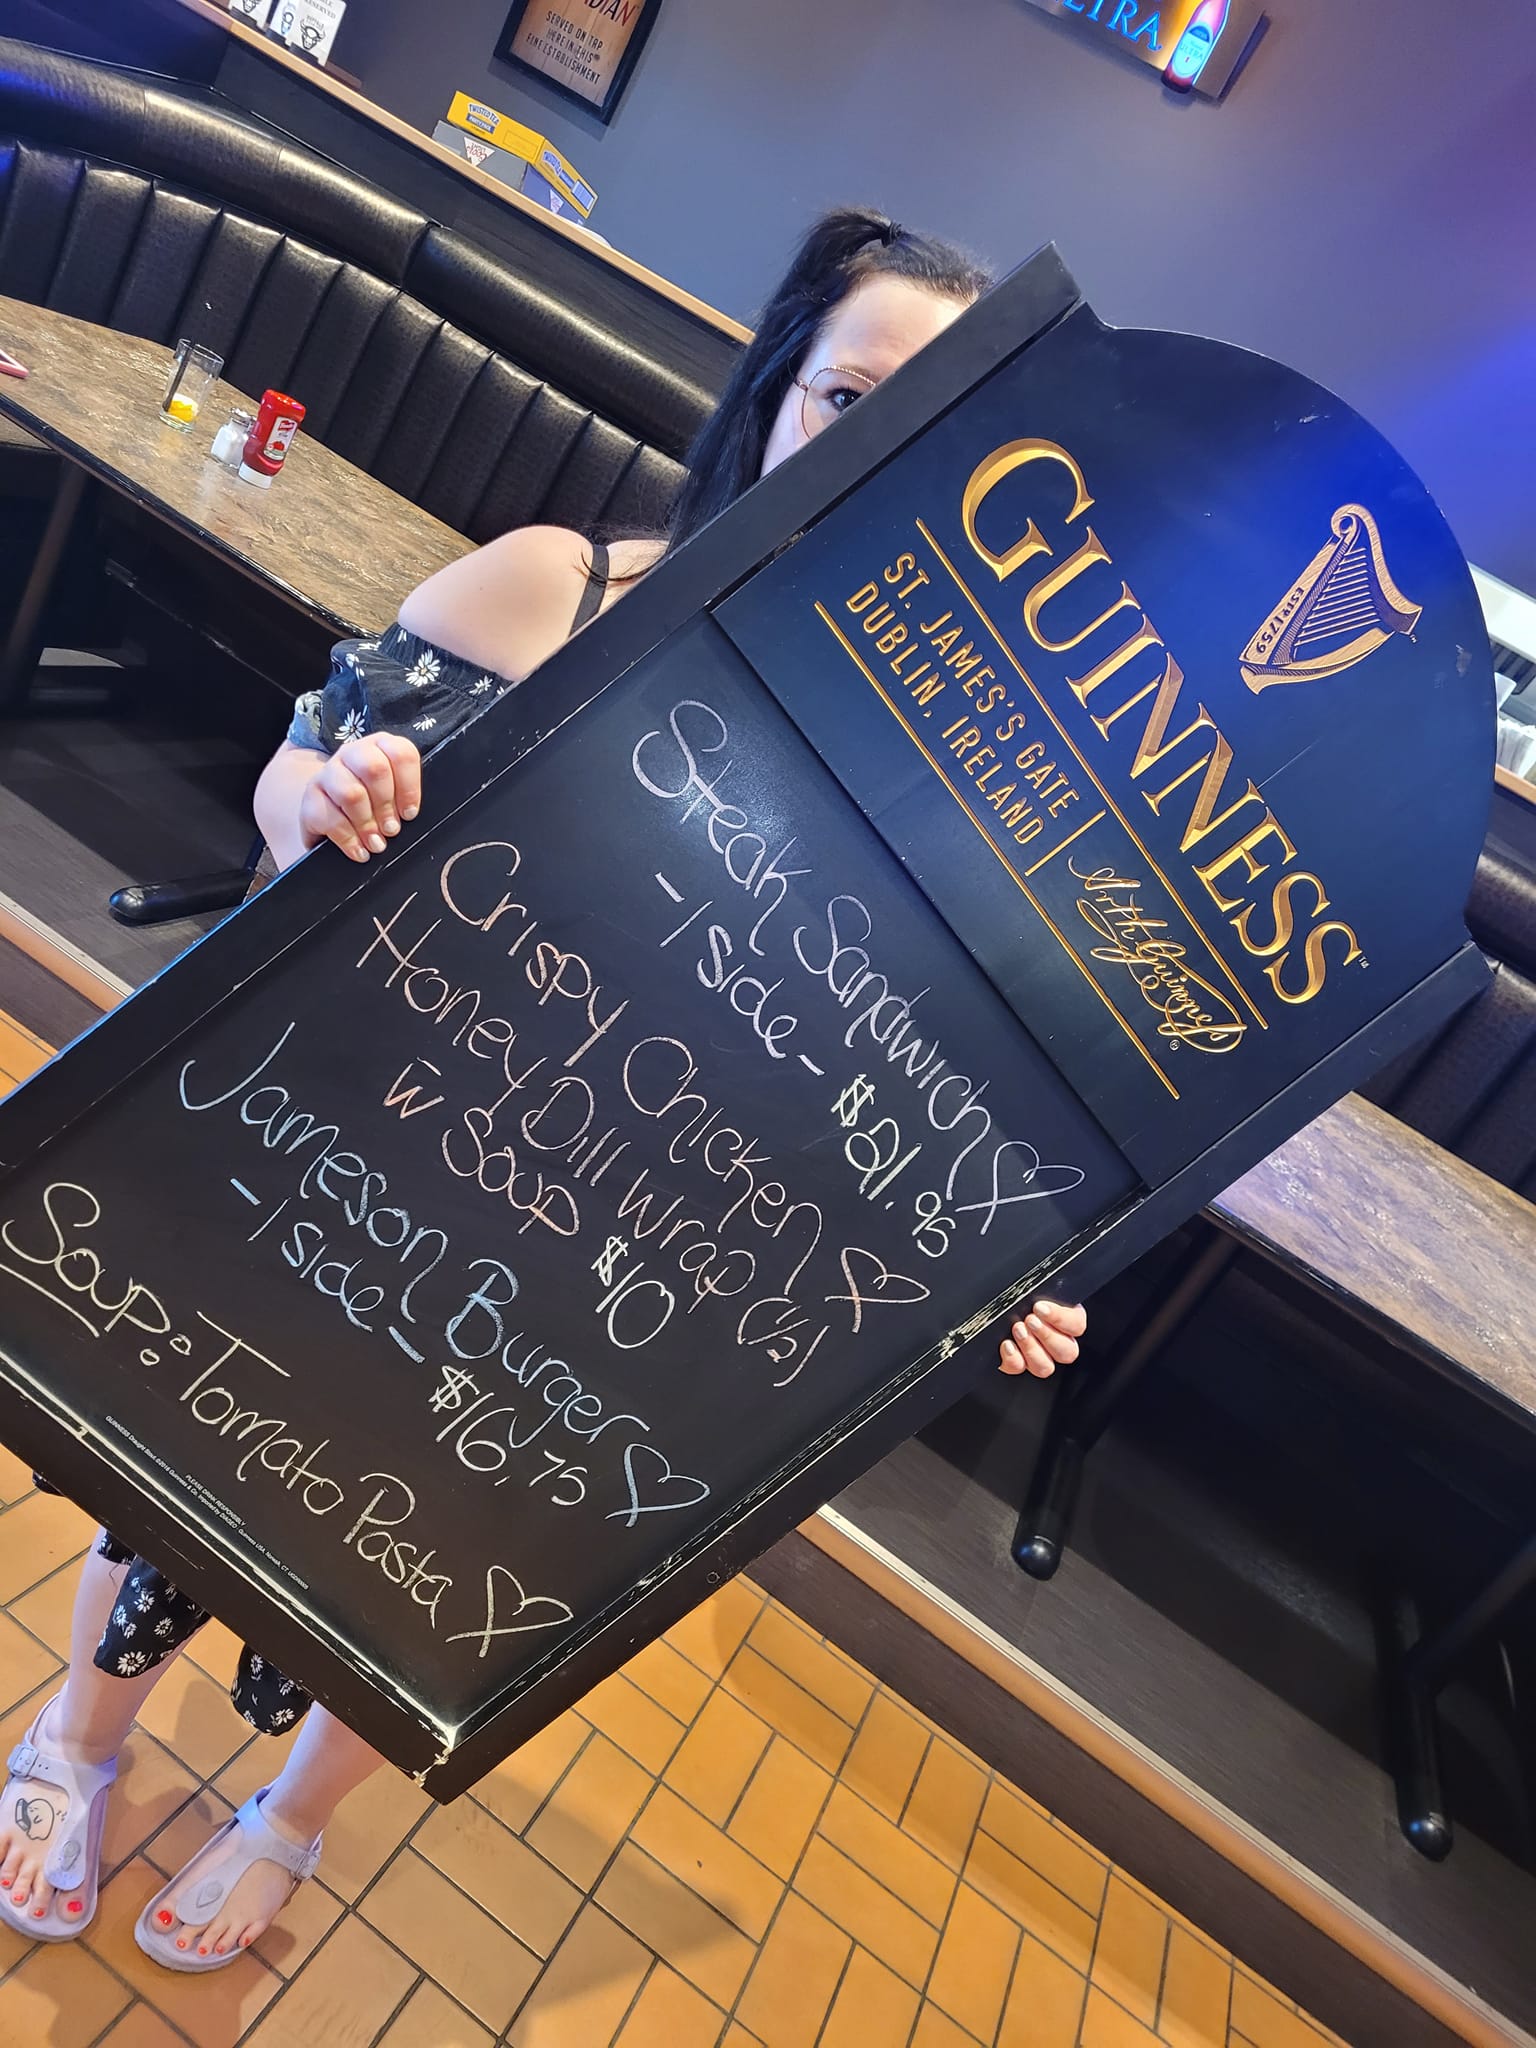 RESERVED
DIAN
SERVED ON TAP
HERE IN THIS
FINE ESTABLISHMENT
ULTRA
ULTRA
TWISTED TEA
ESTD 1759
GUINNESS™
ST. JAMES'S GATE
DUBLIN, IRELAND
Arth Guinness®
Steak Sandwich
-1 side- $21.95
Crispy Chicken
Honey Dill Wrap (1/2)
w Soup $10
Jameson Burger
-1 side- $16.75
Soup: Tomato Pasta
PLEASE DRINK RESPONSIBLY